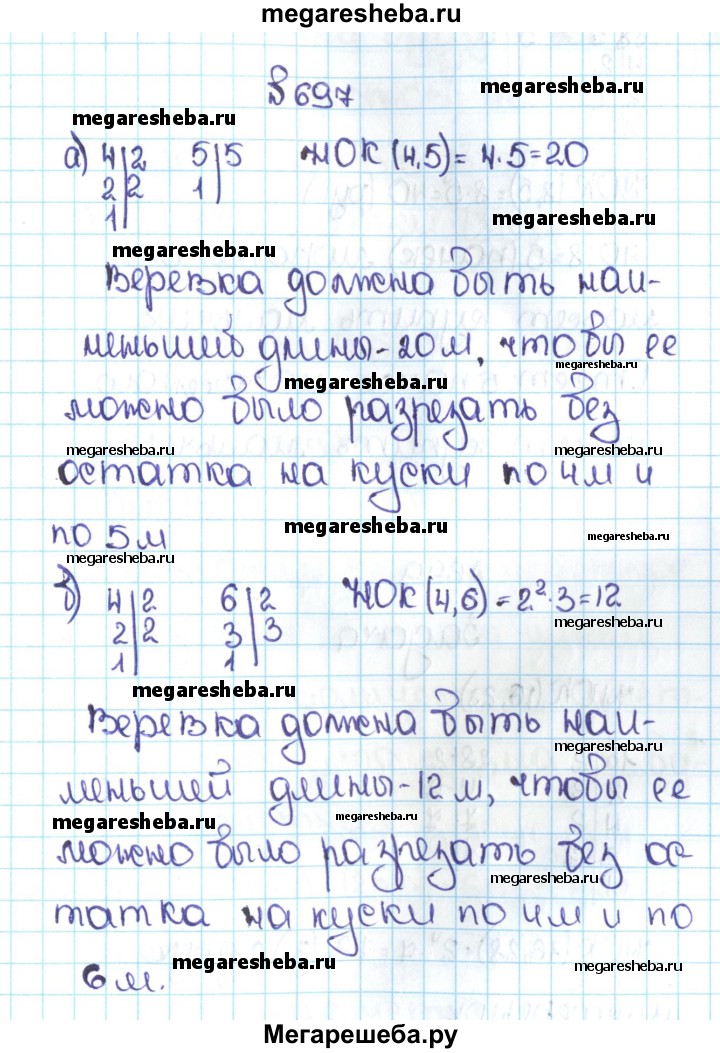 megaresheba.ru
№ 697
megaresheba.ru
megaresheba.ru
а) 4|2 5|5 НОК (4,5) = 4·5=20
2|2 1|
1|
megaresheba.ru
megaresheba.ru
Веревка должна быть наи-
меньшей длины-20 м, чтобы ее
megaresheba.ru
megaresheba.ru
можно было разрезать без
megaresheba.ru
остатка на куски по 4 м и
megaresheba.ru
megaresheba.ru
по 5 м
megaresheba.ru
б) 4|2 6|2 НОК (4,6) = 2²·3=12
megaresheba.ru
2|2 3|3
1| 1|
megaresheba.ru
Веревка должна быть наи-
megaresheba.ru
меньшей длины-12 м, чтобы ее
megaresheba.ru
megaresheba.ru
можно было разрезать без ос-
megaresheba.ru
татка на куски по 4 м и по
megaresheba.ru
megaresheba.ru
6 м.
Мегарешеба.ру